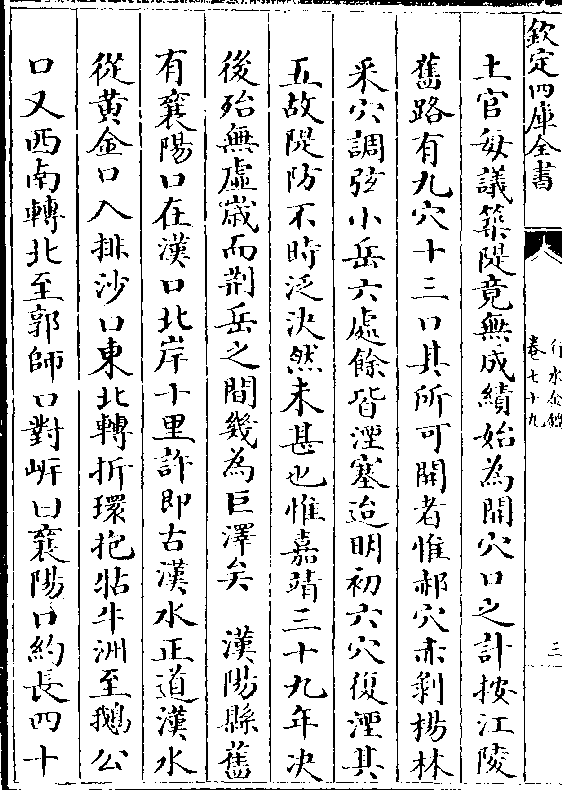 欽定四庫全書
行水金鑑
卷七十九
三
土官每議築隄竟無成績始為開穴口之計按江陵
舊路有九穴十三口其所可開者惟郝穴赤剝楊林
釆穴調弦小岳六處餘皆湮塞迨明初六穴復湮其
五故隄防不時泛決然未甚也惟嘉靖三十九年决
後殆無虛歲而荆岳之間幾為巨澤矣　漢陽縣舊
有襄陽口在漢口北岸十里許即古漢水正道漢水
從黃金口入排沙口東北轉折環抱牯牛洲至鵝公
口又西南轉北至郭師口對㟁曰襄陽口約長四十